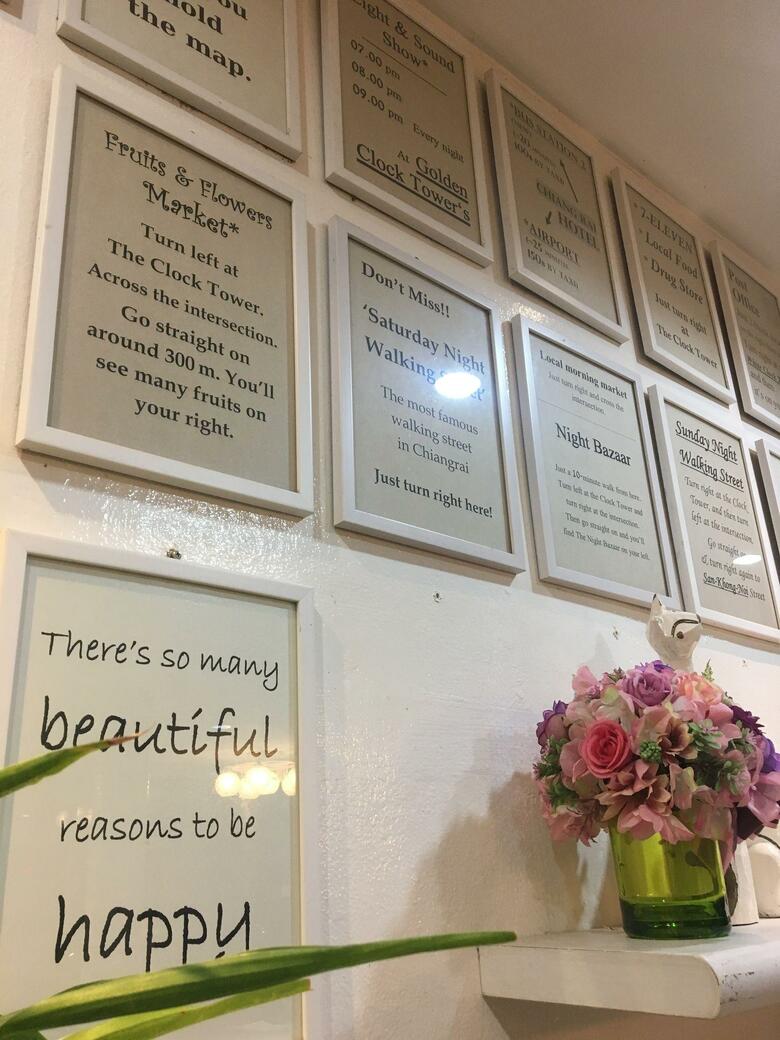 you
hold
the map.
Light & Sound
Show*
07.00 pm
08.00 pm
09.00 pm
Every night
At Golden
Clock Tower's
*BUS STATION 2
100฿ BY TAXI
CHIANG RAI
HOTEL
*AIRPORT
(~25 MINUTES)
150฿ BY TAXI
*7-ELEVEN
*Local Food
*Drug Store
Just turn right
at
The Clock Tower
Post
Office
Fruits & Flowers
Market*
Turn left at
The Clock Tower.
Across the intersection.
Go straight on
around 300 m. You'll
see many fruits on
your right.
Don't Miss!!
'Saturday Night
Walking
The most famous
walking street
in Chiangrai
Just turn right here!
Local morning market
Just turn right and cross the
intersection.
Night Bazaar
Just a 10-minute walk from here.
Turn left at the Clock Tower and
turn right at the intersection.
Then go straight on and you'll
find The Night Bazaar on your left.
Sunday Night
Walking Street
Turn right at the Clock
Tower, and then turn
left at the intersection.
Go straight on
& turn right again to
San-Khong-Noi Street
There's so many
beautiful
reasons to be
happy